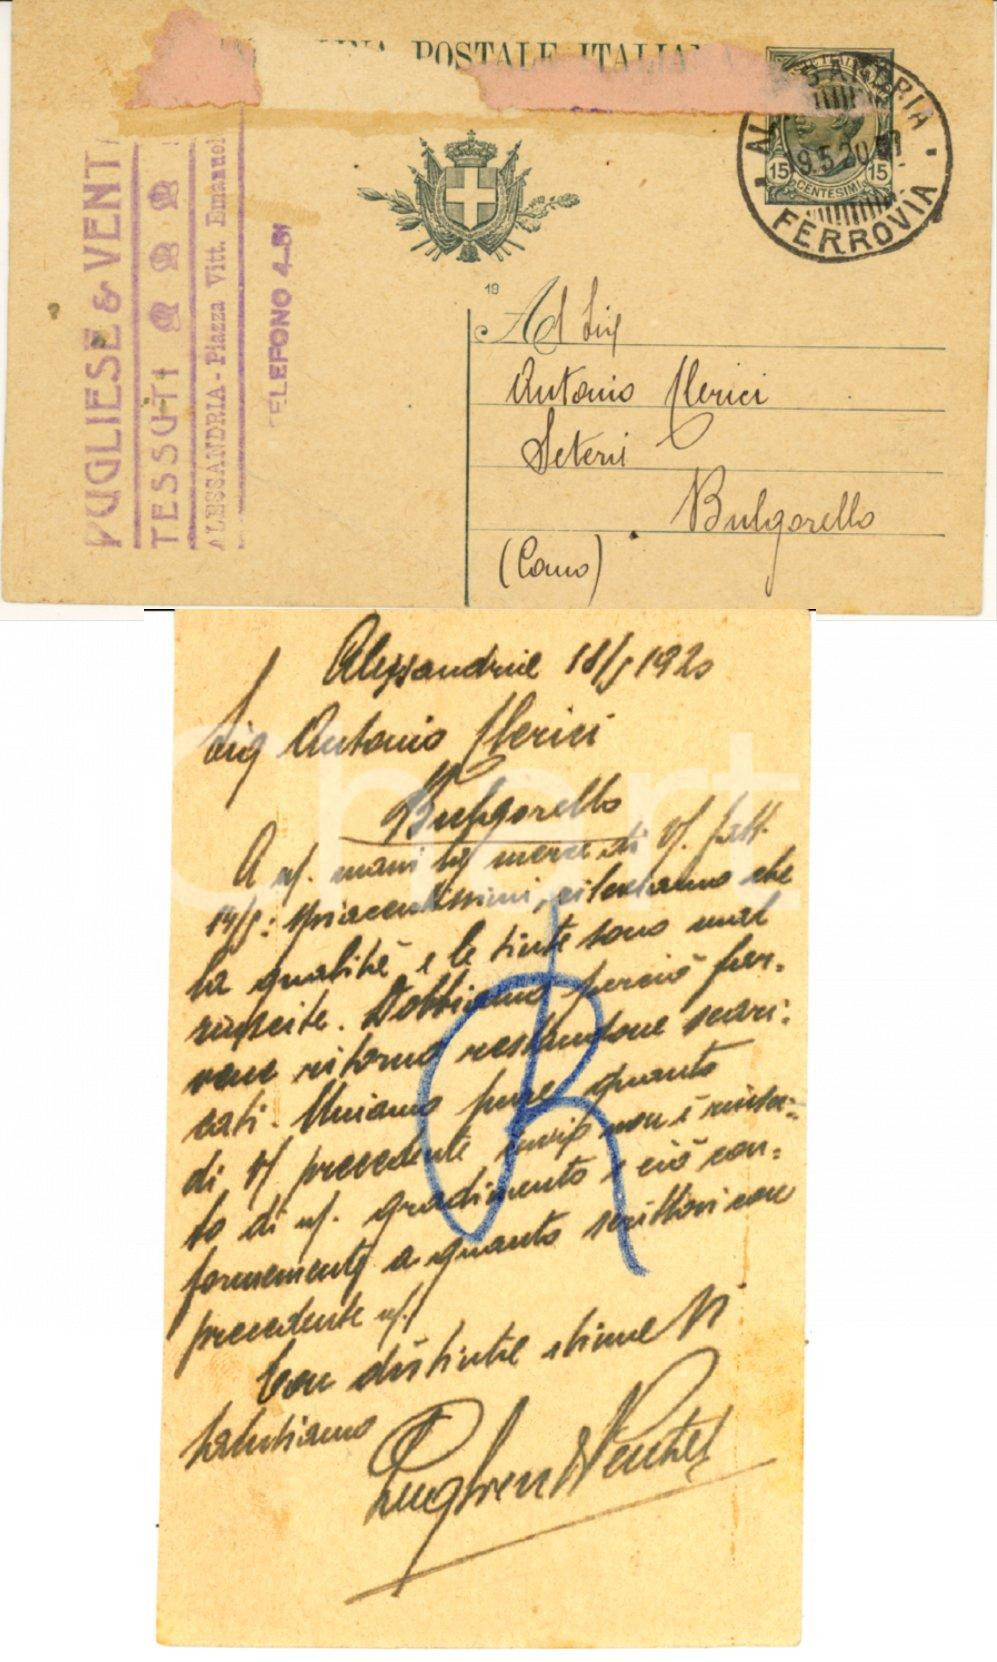 POSTALE ITALIANA
PUGLIESE & VENT
TESSUTI
ALESSANDRIA - Piazza Vitt. Emanuel
TELEFONO 4-81
15 CENTESIMI 15
ALESSANDRIA
19.5.20
FERROVIA
19
Ad Sig
Antonio Clerici
Seterie
Bulgorello
(Como)
Alessandria 18/5 1920
Sig Antonio Clerici
Bulgorello
A n/. mani la merce di V/. fatt.
14/5: spiacentissimi, rileviamo che
la qualità e le tinte sono mal
riuscite. Dobbiamo perciò far-
vene ritorno restandone scari-
cati. Uniamo pure quanto
di V/ precedente invio non è riusci-
to di n/. gradimento e ciò con-
formemente a quanto scrittovi con
precedente n/.
Con distinta stima Vi
salutiamo
Pugliese & Ventura